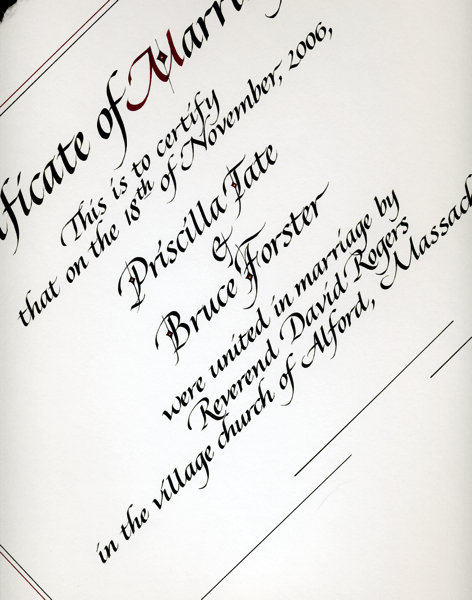 ificate of Marri
This is to certify
that on the 18th of November, 2006,
Priscilla Tate
&
Bruce Forster
were united in marriage by
Reverend David Rogers
in the village church of Alford, Massach